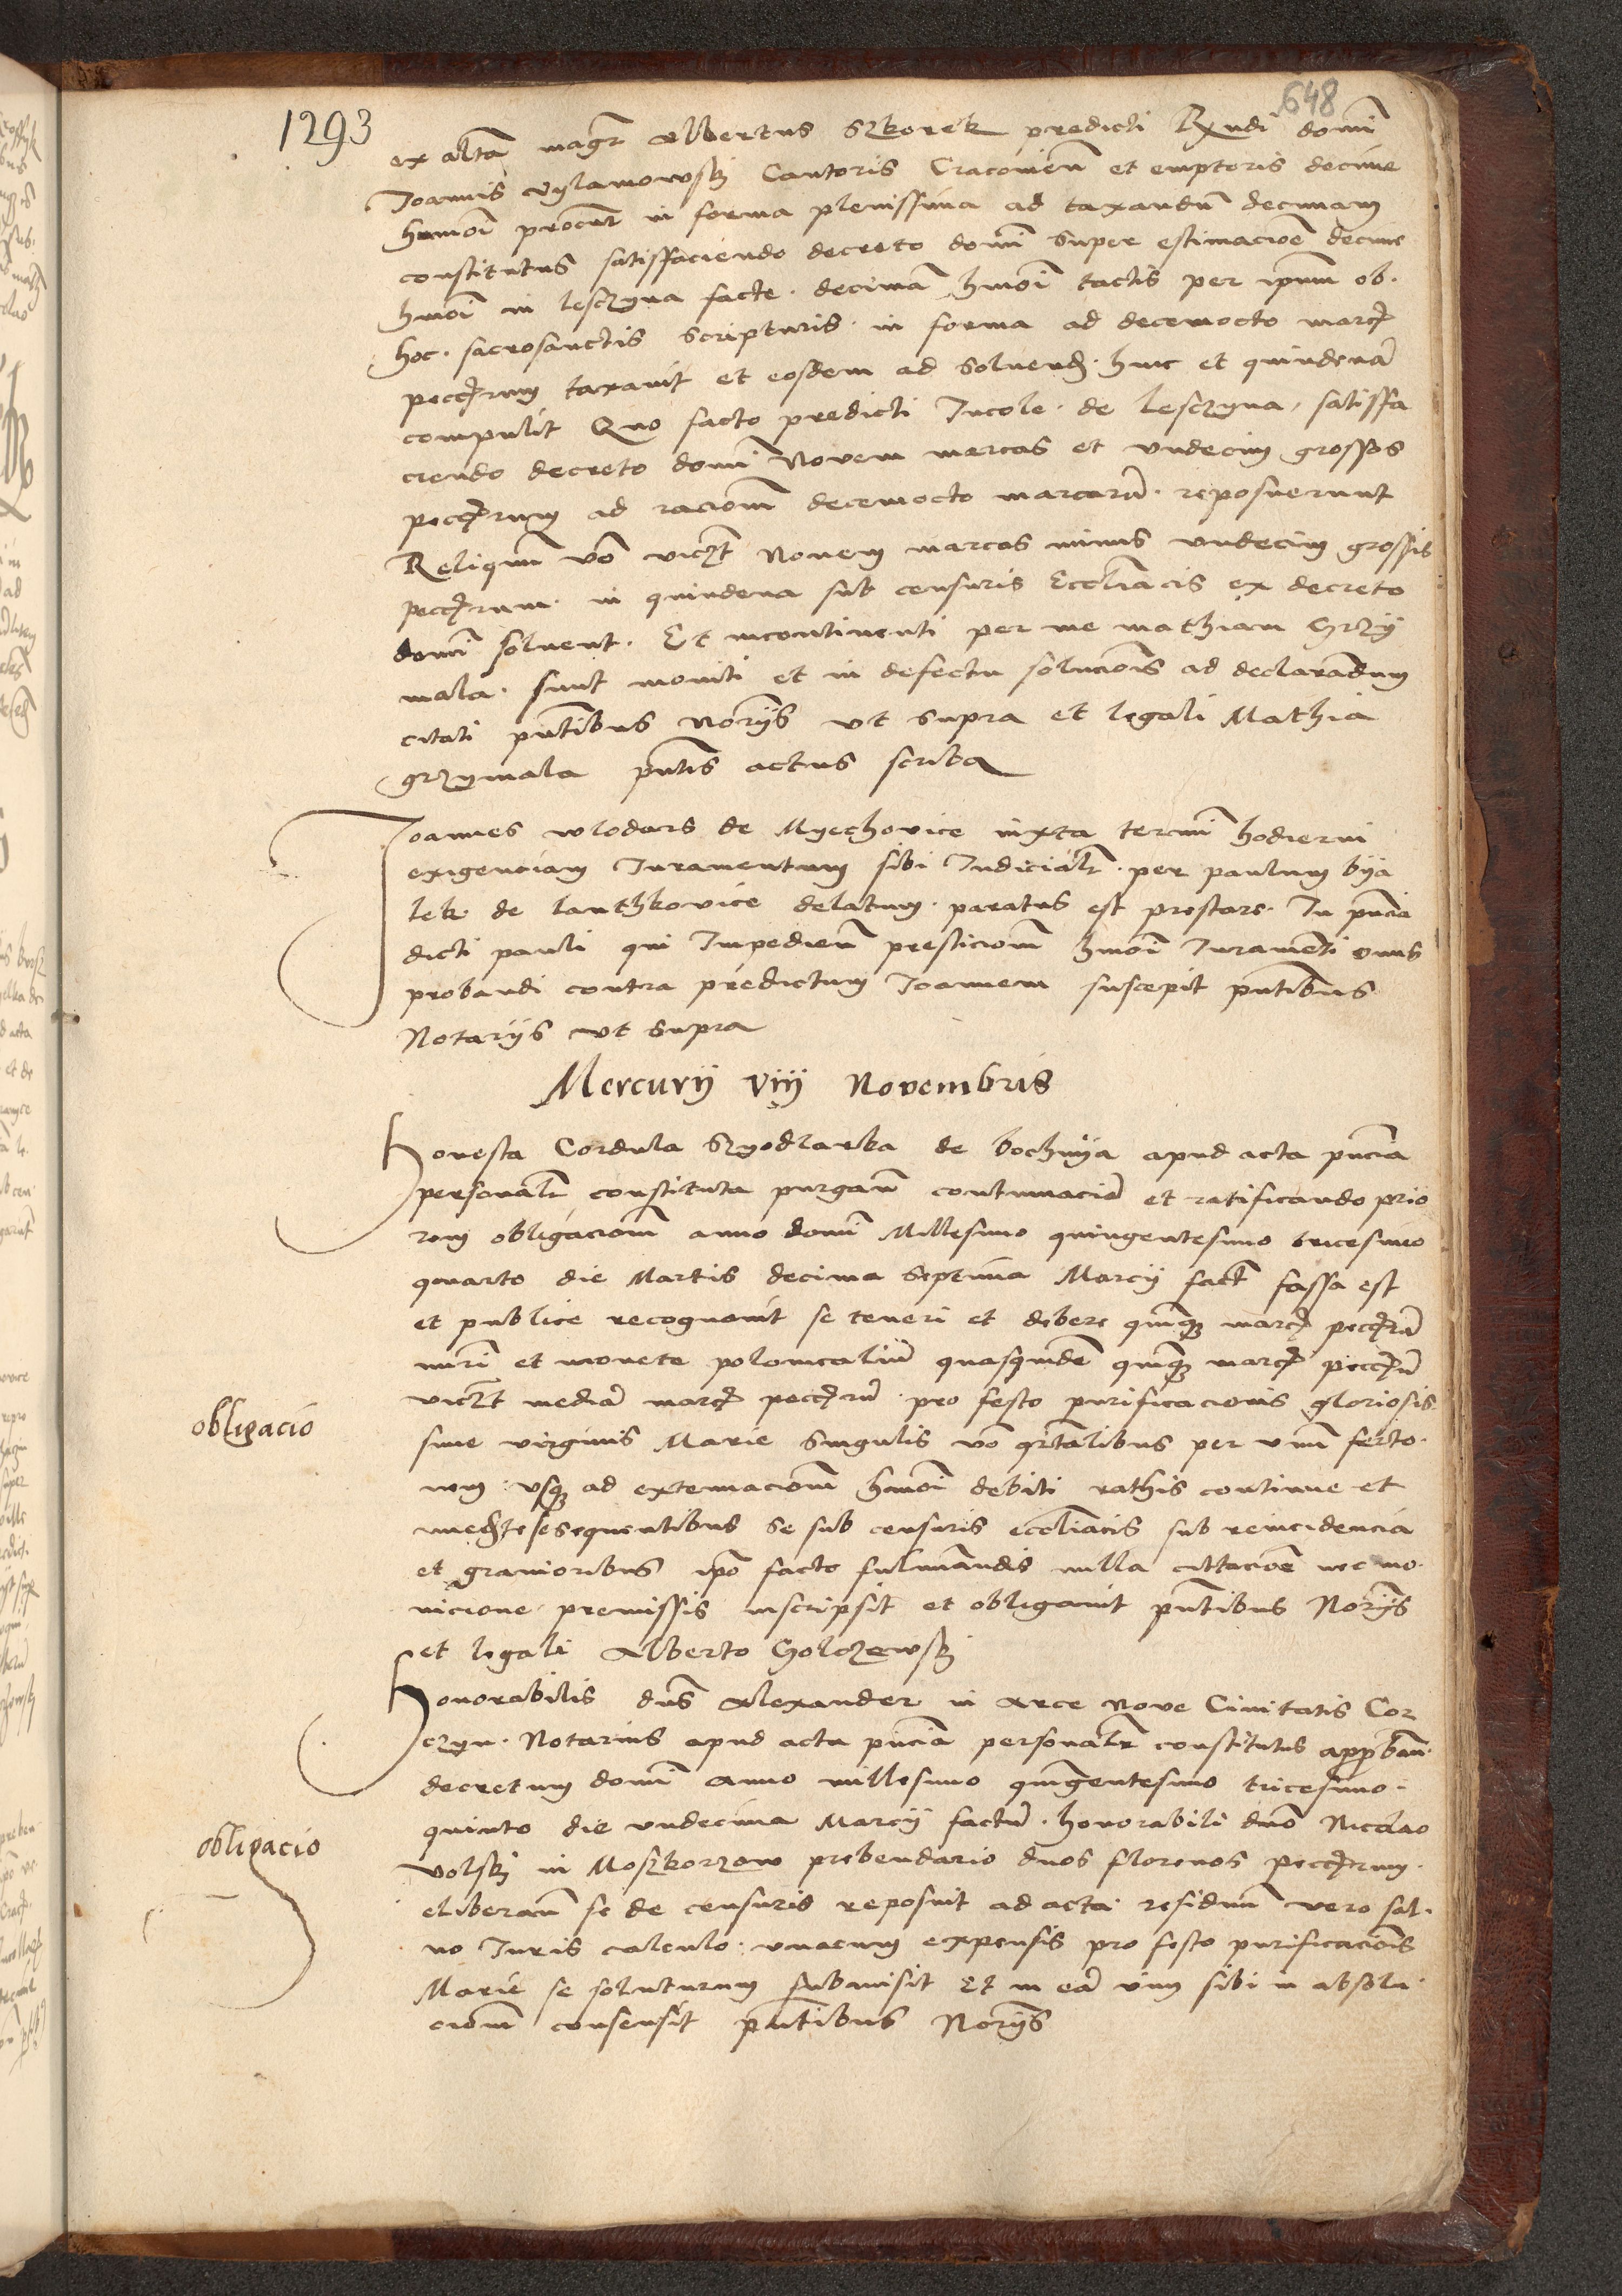 648
1293
ex altã magr Albertus Szkorek predicti Rxndi domi
Joannis Vylamowskj Cantoris Cracovieñ et emptoris decime
hmoi procur in forma plenissima ad taxandũ decimam
constitutus satisffaciendo decreto domi super estimacioe decime
hmoi in Lesczyna facte. decimã hmoi tactis per ipm ob.
hoc. sacrosanctis scripturis. in forma ad decemocto marcẹ
pecc̃rum taxavit et eosdem ad solvend. hinc et quindenã
compulit Quo facto predicti Incole. de Lesczyna, satisffa
ciendo decreto domi Novem marcas et undecim grossos
pecc̃rum ad racionẽ decemocto marcarũ. reposuerunt
Reliquũ vo viczt Novem marcas minus undecim grossis
pecc̃rum. in quindena sub censuris Eccliacis ex decreto
domi solvent. Et incontinenti per me Mathiam Grzÿ
mala. sunt moniti et in defectu solucionis ad declarandum
citati pntibus Norÿs ut supra et legali Mathia
grzymala pntis actus scriba
Joannes wlodars de Myechovice iuxta termi hodierni
exigenciam Iuramentum sibi Iudicialr. per paulum bÿa
lek de Lanthkovice delatum. paratus est prestare. In pncia
dicti pauli qui Impedieñ presticionẽ hmoi Iuramenti onus
probandi contra predictum Joannem suscepit pntibus
Notarÿs ut supra
Mercurÿ viÿ Novembris
Honesta Cordula Szyodlarka de bochnÿa apud acta pncia
personalr constituta purgañ contumaciã et ratificando prio
rem obligacionẽ anno domi Millesimo quingentesimo tricesimo
quarto die Martis decima septima Marcÿ fact fassa est
et publice recognovit se teneri et debere quinqꝫ marcẹ pecc̃rũ
nuri et monete polonicaliũ quasquidẽ quinqꝫ marcẹ pecc̃rũ
viczt mediã marcẹ pecc̃rũ. pro festo purificacionis gloriosis
obligacio
sime virginis Marie singulis vo qrtalibus per unũ ferto.
nem. usqꝫ ad extenuacionẽ hmoi debiti rathis continue et
immedte se sequentibus se sub censuris eccliacis sub reincidencia
et gravioribus ipo facto fulminandis nulla cittacioe nec mo
nicione premissis inscripsit et obligavit pntibus Norÿs
et legali Alberto Golczewskj
Honorabilis dns Alexander in Arce Nove Civitatis Cor
czyn. Notarius apud acta pncia personalr constitutus approbañ.
decretum domi Anno millesimo quingentesimo tricesimo.
quinto die undecima Marcÿ factũ. honorabili dno Nicolao
obligacio
Volskj in Moszkorzow prebendario duos florenos pecc̃rum.
eliberañ se de censuris reposuit ad acta. residuũ vero sal.
vo Iuris calculo. unacum expensis pro festo purificacionis
Marie se soluturum submisit Et in eã vim sibi in absolu
cionẽ consensit pntibus Norÿs